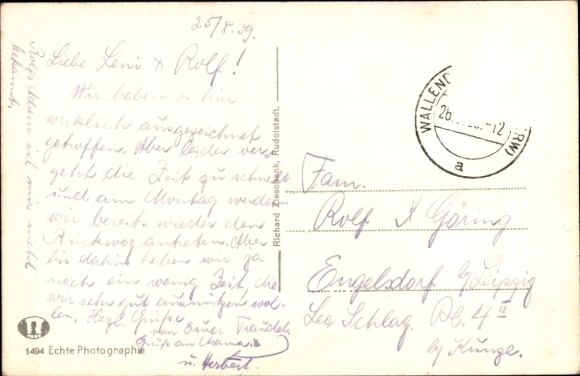 25/8.39.
Liebe Leni & Rolf!
Wir haben es hier
wirklich ausgezeichnet
getroffen. Aber leider ver-
geht die Zeit zu schnell
und am Montag werden
wir bereits wieder den
Rückweg antreten. Aber
bis dahin haben wir ja
noch ein wenig Zeit, die
wir sehr gut ausnützen wol-
len. Hzgl. Grüße
von Eurer Traudel
Gruß an Mama
u. Herbert.
Rolfs Adresse ist mir nicht
bekannt.
1494 Echte Photographie
Richard Zieschank, Rudolstadt.
WALLEND
RW)
26. -12
a
Fam.
Rolf K Göring
Engelsdorf b/Leipzig
Leo Schlag. Pl. 4 II
by Kunze.